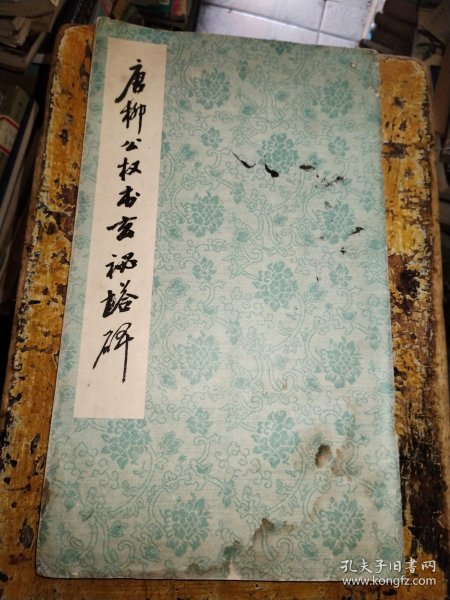 唐柳公权书玄秘塔碑
孔夫子旧书网
www.kongfz.com